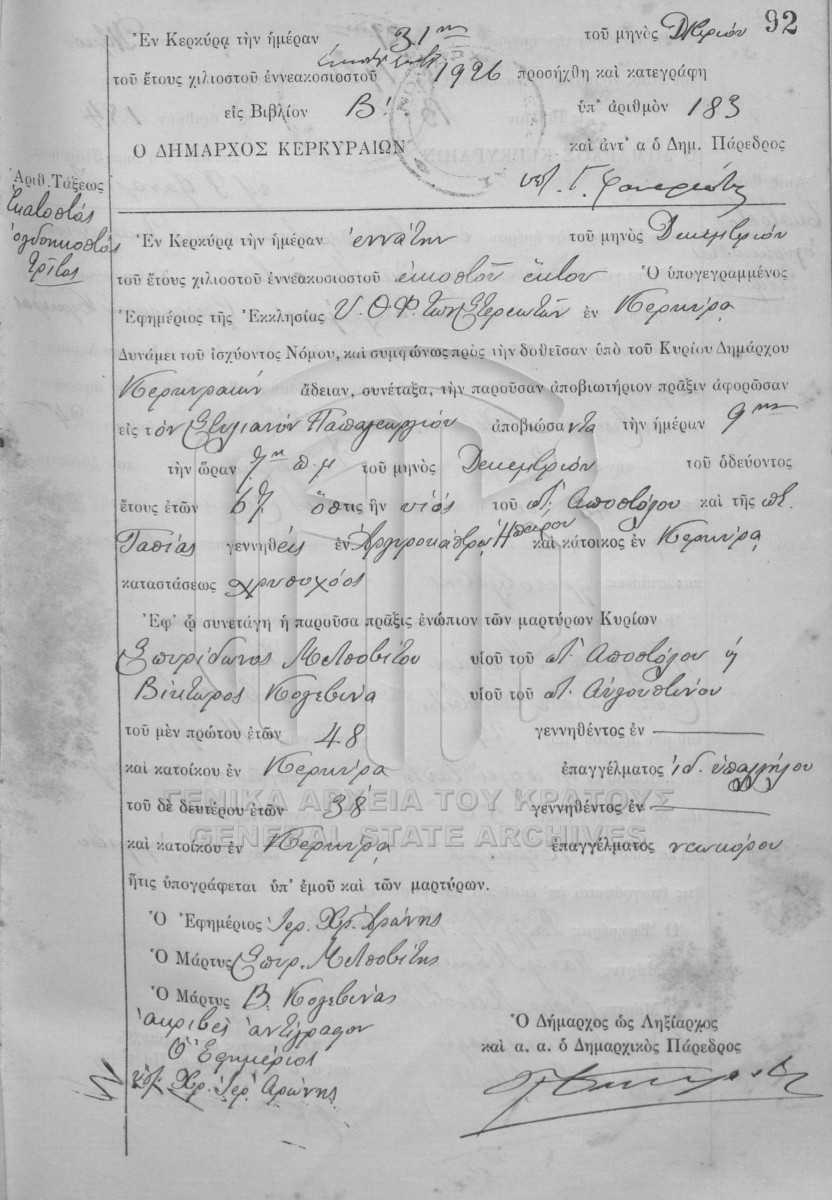 92
Ἐν Κερκύρᾳ τὴν ἡμέραν 31ην τοῦ μηνὸς Δ/βρίου
τοῦ ἔτους χιλιοστοῦ ἐννεακοσιοστοῦ 1926 προσήχθη καὶ κατεγράφη
εἰς Βιβλίον Β! ὑπ' ἀριθμὸν 183
Ο ΔΗΜΑΡΧΟΣ ΚΕΡΚΥΡΑΙΩΝ καὶ ἀντ' α ὁ Δημ. Πάρεδρος
Γ.
Ἀριθ. Τάξεως
Ἑκατοστὸς
ὀγδοηκοστὸς
τρίτος
Ἐν Κερκύρᾳ τὴν ἡμέραν ἐννάτην τοῦ μηνὸς Δεκεμβρίου
τοῦ ἔτους χιλιοστοῦ ἐννεακοσιοστοῦ εἰκοστοῦ ἕκτου Ὁ ὑπογεγραμμένος
Ἐφημέριος τῆς Ἐκκλησίας Υ. Θ. Φ. τῶν ἐν Κερκύρᾳ
Δυνάμει τοῦ ἰσχύοντος Νόμου, καὶ συμφώνως πρὸς τὴν δοθεῖσαν ὑπὸ τοῦ Κυρίου Δημάρχου
Κερκυραίων ἄδειαν, συνέταξα, τὴν παροῦσαν ἀποβιωτήριον πρᾶξιν ἀφορῶσαν
εἰς τὸν Στυλιανὸν Παπαγεωργίου ἀποβιώσαντα τὴν ἡμέραν 9ην
τὴν ὥραν 7ην π.μ τοῦ μηνὸς Δεκεμβρίου τοῦ ὁδεύοντος
ἔτους ἐτῶν 67 ὅστις ἦν υἱός τοῦ ποτ. Ἀποστόλου καὶ τῆς ποτ.
γεννηθείς ἐν Ἀργυροκάστρῳ Ἠπείρου καὶ κάτοικος ἐν Κερκύρᾳ
καταστάσεως χρυσοχόος
Ἐφ' ᾧ συνετάγη ἡ παροῦσα πρᾶξις ἐνώπιον τῶν μαρτύρων Κυρίων
Σπυρίδωνος υἱοῦ τοῦ ποτ. Ἀποστόλου ἢ
Βίκτωρος Κολεβίνα υἱοῦ τοῦ ποτ. Αὐγουστίνου
τοῦ μὲν πρώτου ἐτῶν 48 γεννηθέντος ἐν —
καὶ κατοίκου ἐν Κερκύρᾳ ἐπαγγέλματος ἰδ. ὑπαλλήλου
τοῦ δὲ δευτέρου ἐτῶν 38 γεννηθέντος ἐν —
ΓΕΝΙΚΑ ΑΡΧΕΙΑ ΤΟΥ ΚΡΑΤΟΥΣ
GENERAL STATE ARCHIVES
καὶ κατοίκου ἐν Κερκύρᾳ ἐπαγγέλματος νεωκόρου
ἥτις ὑπογράφεται ὑπ' ἐμοῦ καὶ τῶν μαρτύρων.
Ὁ Ἐφημέριος Ἱερ. Χρ. Ἀρώνης
Ὁ Μάρτυς Σπυρ.
Ὁ Μάρτυς Β. Κολεβίνας
ἀκριβὲς ἀντίγραφον
Ὁ Ἐφημέριος
Χρ. Ἱερ. Ἀρώνης
Ὁ Δήμαρχος ὡς Ληξίαρχος
καὶ α. α. ὁ Δημαρχικὸς Πάρεδρος